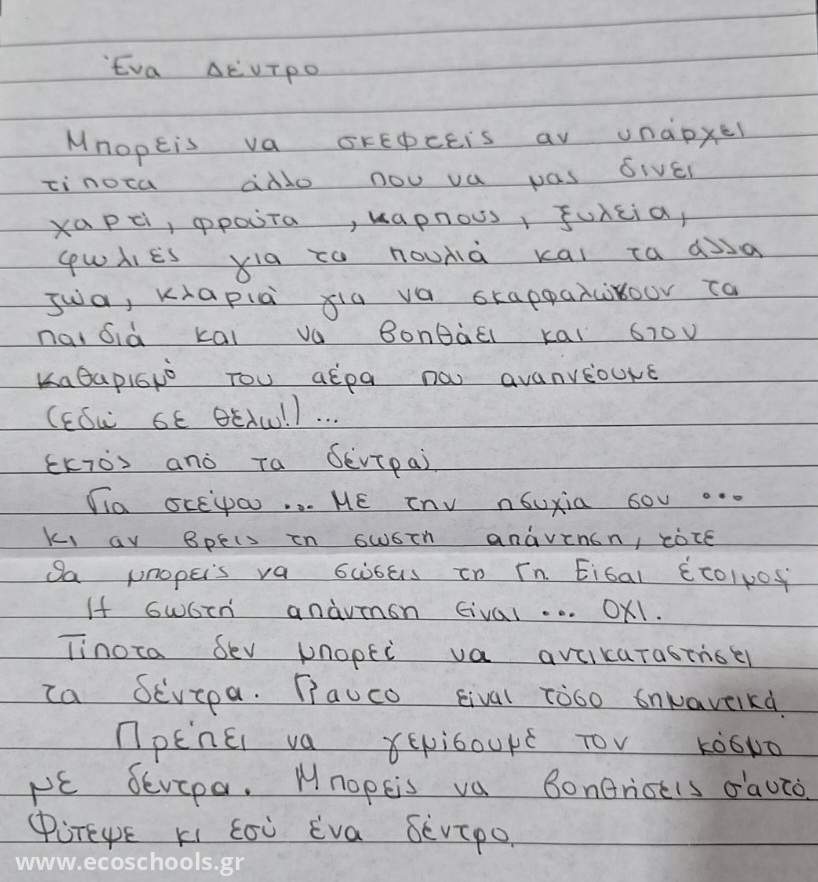 Ένα Δέντρο
Μπορείς να σκεφτείς αν υπάρχει
τίποτα άλλο που να μας δίνει
χαρτί, φρούτα, καρπους, ξυλεία,
φωλιές για τα πουλιά και τα άλλα
ζώα, κλαριά για να σκαρφαλώνουν τα
παιδιά και να βοηθάει και στον
καθαρισμό του αέρα που αναπνέουμε
(εδώ σε θέλω!)...
εκτός από τα δέντρα;
Για σκέψου ... Με την ησυχία σου ...
κι αν βρεις τη σωστη απάντηση, τότε
θα μπορείς να σώσεις τη Γη. Είσαι έτοιμος;
Η σωστή απάντηση είναι ... ΟΧΙ.
Τίποτα δεν μπορεί να αντικαταστήσει
τα δέντρα. Γι αυτο είναι τόσο σημαντικά.
Πρέπει να γεμίσουμε τον κόσμο
με δέντρα. Μπορείς να βοηθήσεις σ'αυτό.
Φύτεψε κι εσύ ένα δέντρο.
www.ecoschools.gr